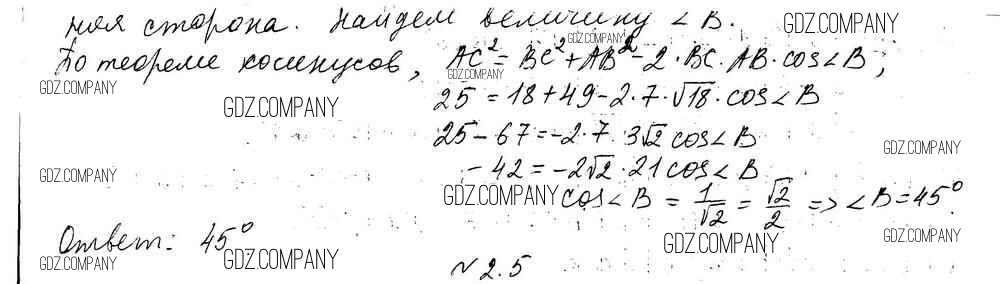 ная сторона. Найдем величину ∠B. GDZ.COMPANY
По теореме косинусов, AC² = BC² + AB² - 2·BC·AB·cos∠B;
GDZ.COMPANY GDZ.COMPANY GDZ.COMPANY
25 = 18 + 49 - 2·7·√18·cos∠B
GDZ.COMPANY GDZ.COMPANY
25 - 67 = -2·7·3√2 cos∠B
GDZ.COMPANY
-42 = -2√2·21 cos∠B
GDZ.COMPANY GDZ.COMPANY
GDZ.COMPANY cos∠B = 1/√2 = √2/2 => ∠B = 45°
Ответ: 45° GDZ.COMPANY GDZ.COMPANY
GDZ.COMPANY GDZ.COMPANY
№2.5